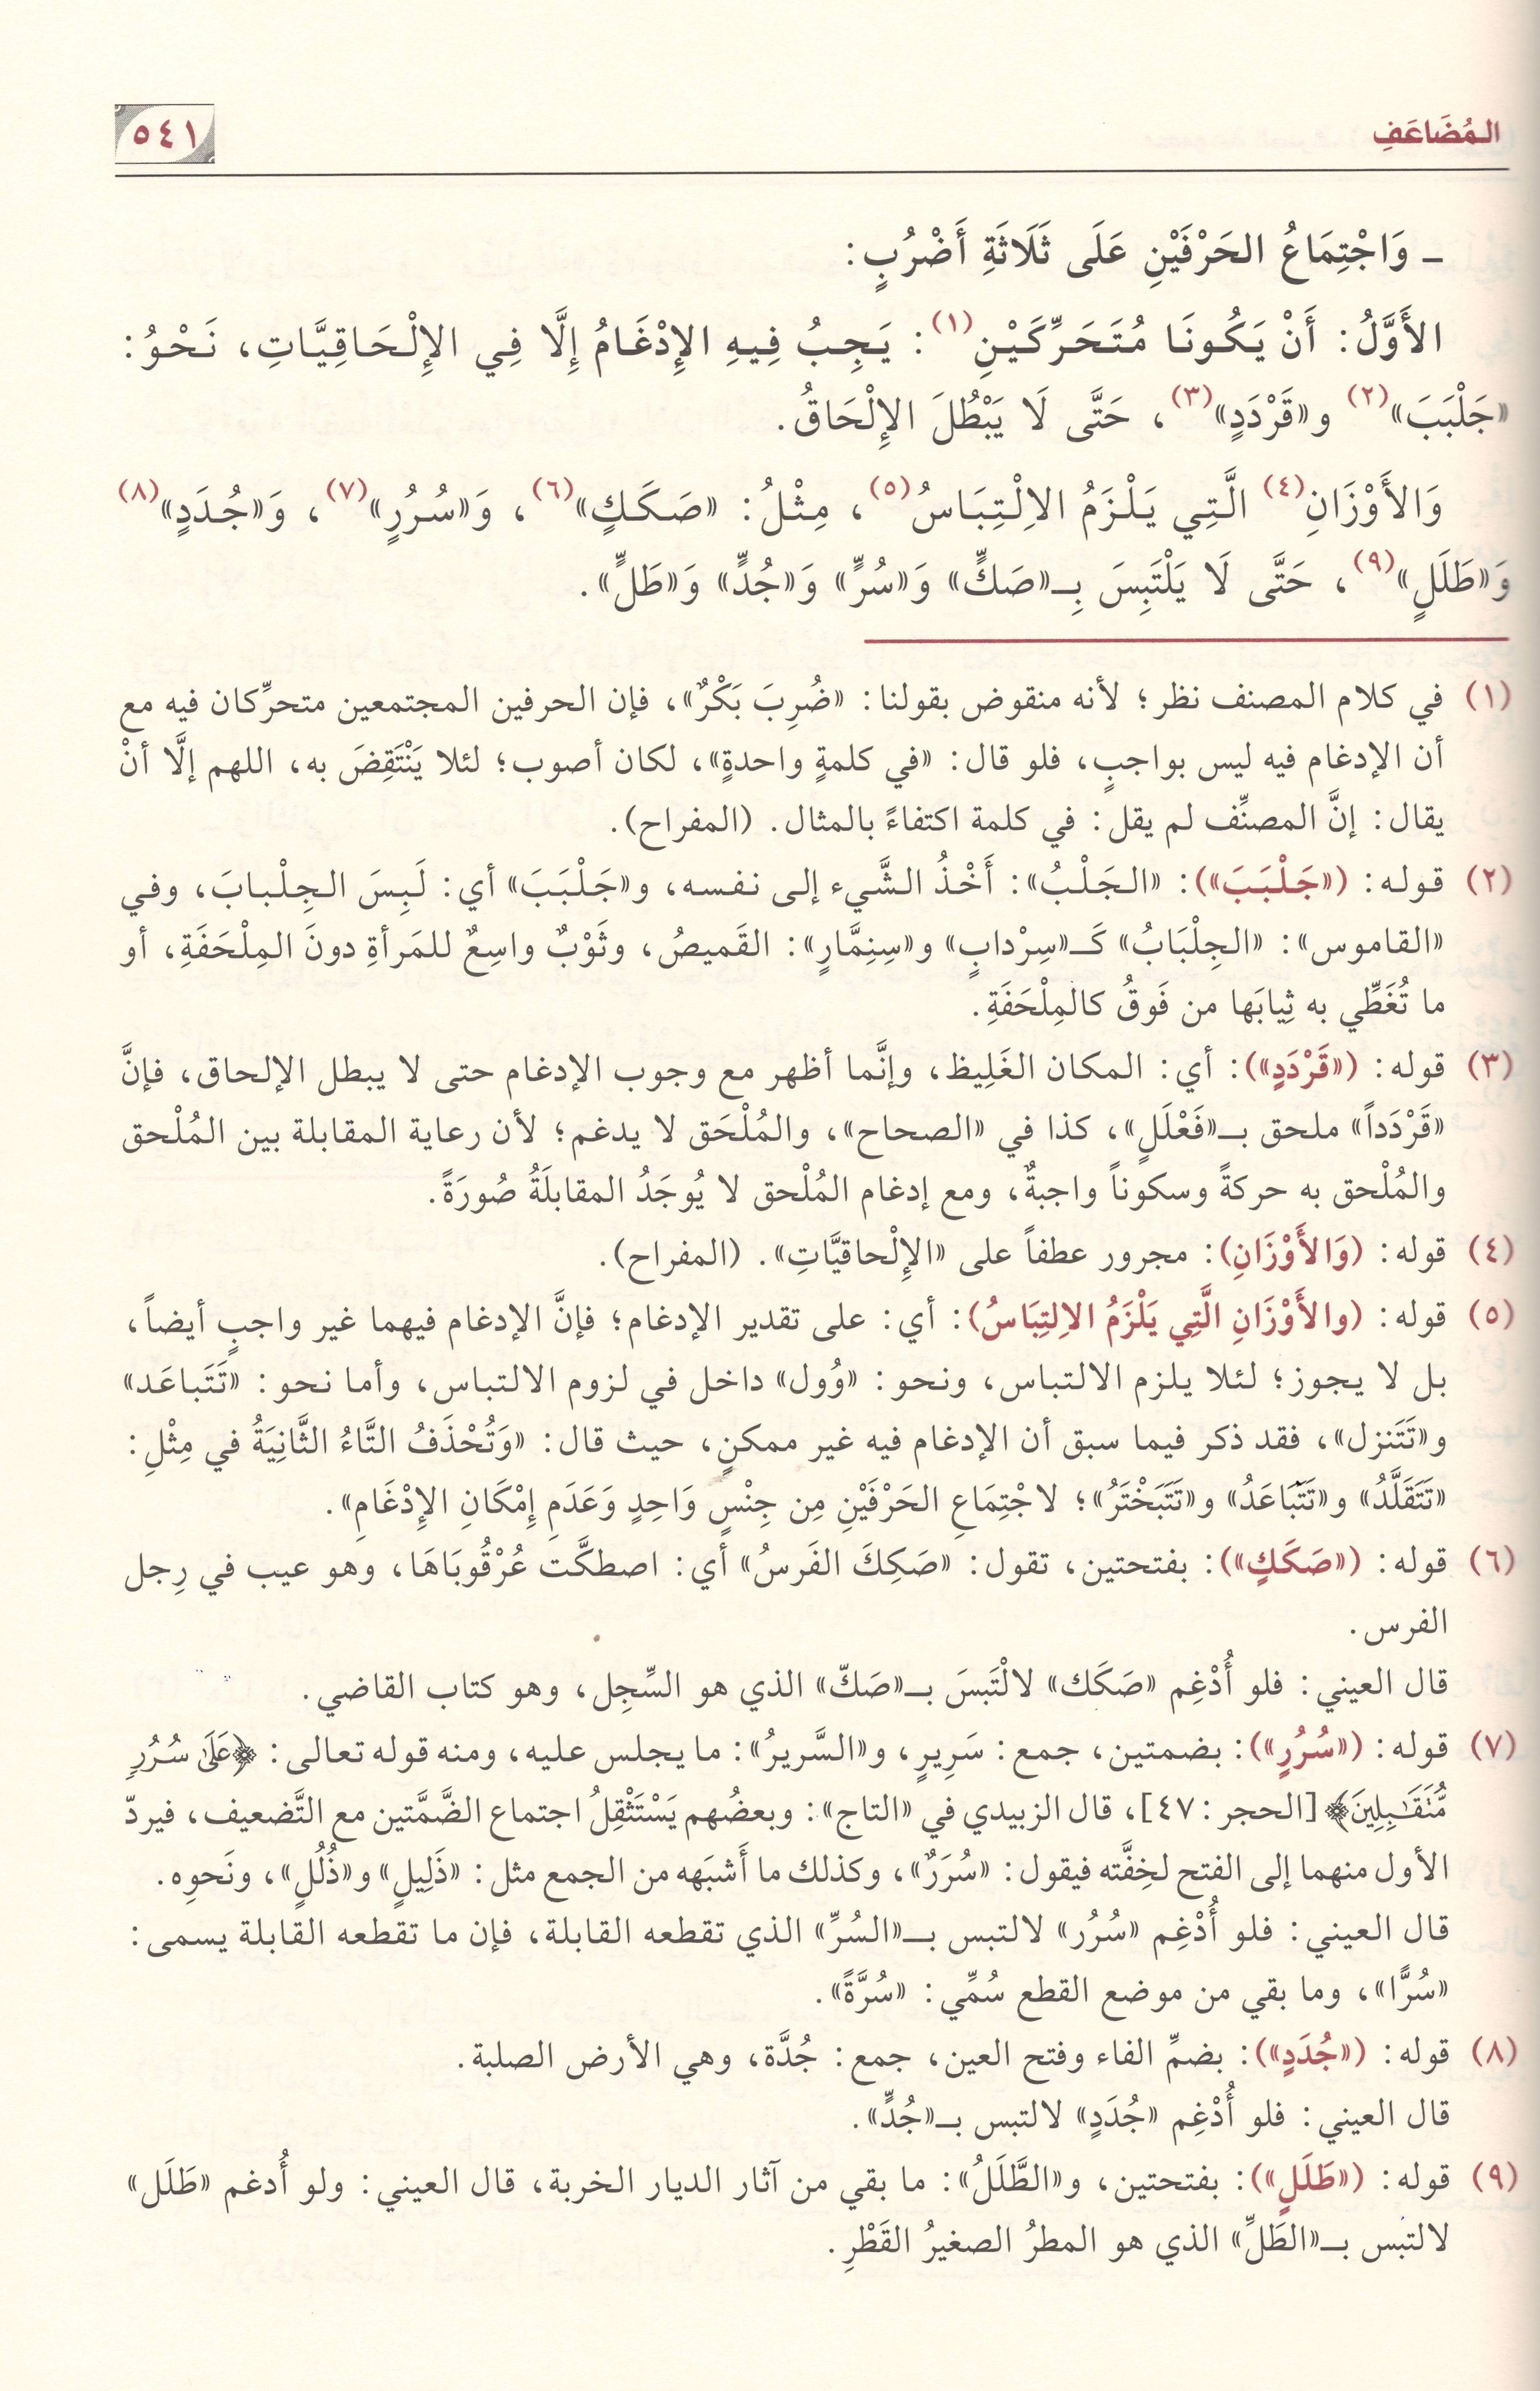 المُضَاعَفِ
٥٤١
ـ وَاجْتِمَاعُ الحَرْفَيْنِ عَلَى ثَلَاثَةِ أَضْرُبٍ:
الأَوَّلُ: أَنْ يَكُونَا مُتَحَرِّكَيْنِ(١): يَجِبُ فِيهِ الإِدْغَامُ إِلَّا فِي الإِلْحَاقِيَّاتِ، نَحْوُ:
«جَلْبَبَ»(٢) و«قَرْدَدٍ»(٣)، حَتَّى لَا يَبْطُلَ الإِلْحَاقُ.
وَالأَوْزَانِ(٤) الَّتِي يَلْزَمُ الاِلْتِبَاسُ(٥)، مِثْلُ: «صَكَكٍ»(٦)، وَ«سُرُرٍ»(٧)، وَ«جُدَدٍ»(٨)
وَ«طَلَلٍ»(٩)، حَتَّى لَا يَلْتَبِسَ بِـ«صَكٍّ» وَ«سُرٍّ» وَ«جُدٍّ» وَ«طَلٍّ».
(١) في كلام المصنف نظر؛ لأنه منقوض بقولنا: «ضُرِبَ بَكْرٌ»، فإن الحرفين المجتمعين متحرِّكان فيه مع
أن الإدغام فيه ليس بواجبٍ، فلو قال: «في كلمةٍ واحدةٍ»، لكان أصوب؛ لئلا يَنْتَقِضَ به، اللهم إلَّا أنْ
يقال: إنَّ المصنِّف لم يقل: في كلمة اكتفاءً بالمثال. (المفراح).
(٢) قوله: («جَلْبَبَ»): «الجَلْبُ»: أَخْذُ الشَّيء إلى نفسه، و«جَلْبَبَ» أي: لَبِسَ الجِلْبابَ، وفي
«القاموس»: «الجِلْبَابُ» كَـ«سِرْدابٍ» و«سِنِمَّارٍ»: القَميصُ، وثَوْبٌ واسِعٌ للمَرأةِ دونَ المِلْحَفَةِ، أو
ما تُغَطِّي به ثِيابَها من فَوقُ كالمِلْحَفَةِ.
(٣) قوله: («قَرْدَدٍ»): أي: المكان الغَلِيظ، وإنَّما أظهر مع وجوب الإدغام حتى لا يبطل الإلحاق، فإنَّ
«قَرْدَداً» ملحق بـ«فَعْلَلٍ»، كذا في «الصحاح»، والمُلْحَق لا يدغم؛ لأن رعاية المقابلة بين المُلْحق
والمُلْحق به حركةً وسكوناً واجبةٌ، ومع إدغام المُلْحق لا يُوجَدُ المقابلَةُ صُورَةً.
(٤) قوله: (وَالأَوْزَانِ): مجرور عطفاً على «الإِلْحاقيَّاتِ». (المفراح).
(٥) قوله: (والأَوْزَانِ الَّتِي يَلْزَمُ الاِلتِبَاسُ): أي: على تقدير الإدغام؛ فإنَّ الإدغام فيهما غير واجبٍ أيضاً،
بل لا يجوز؛ لئلا يلزم الالتباس، ونحو: «وُول» داخل في لزوم الالتباس، وأما نحو: «تَتَباعَد»
و«تَتَنزل»، فقد ذكر فيما سبق أن الإدغام فيه غير ممكنٍ، حيث قال: «وَتُحْذَفُ التَّاءُ الثَّانِيَةُ في مِثْلِ:
«تَتَقَلَّدُ» و«تَتْبَاعَدُ» و«تَتَبَخْتَرُ»؛ لاجْتِمَاعِ الحَرْفَيْنِ مِن جِنْسٍ وَاحِدٍ وَعَدَمِ إِمْكَانِ الإِدْغَامِ».
(٦) قوله: («صَكَكٍ»): بفتحتين، تقول: «صَكِكَ الفَرسُ» أي: اصطكَّت عُرْقُوبَاهَا، وهو عيب في رِجل
الفرس.
قال العيني: فلو أُدْغِم «صَكَك» لالْتَبسَ بـ«صَكّ» الذي هو السِّجِل، وهو كتاب القاضي.
(٧) قوله: («سُرُرٍ»): بضمتين، جمع: سَرِيرٍ، و«السَّريرُ»: ما يجلس عليه، ومنه قوله تعالى: ﴿عَلَىٰ سُرُرٍ
مُّتَقَـٰبِلِينَ﴾ [الحجر: ٤٧]، قال الزبيدي في «التاج»: وبعضُهم يَسْتَثْقِلُ اجتماع الضَّمَّتين مع التَّضعيف، فيردّ
الأول منهما إلى الفتح لخِفَّته فيقول: «سُرَرٌ»، وكذلك ما أَشبَهه من الجمع مثل: «ذَلِيلٍ» و«ذُلُلٍ»، ونَحوِه.
قال العيني: فلو أُدْغِم «سُرُر» لالتبس بـ«السُرِّ» الذي تقطعه القابلة، فإن ما تقطعه القابلة يسمى:
«سُرًّا»، وما بقي من موضع القطع سُمِّي: «سُرَّةً».
(٨) قوله: («جُدَدٍ»): بضمِّ الفاء وفتح العين، جمع: جُدَّة، وهي الأرض الصلبة.
قال العيني: فلو أُدْغِم «جُدَدٍ» لالتبس بـ«جُدٍّ».
(٩) قوله: («طَلَلٍ»): بفتحتين، و«الطَّلَلُ»: ما بقي من آثار الديار الخربة، قال العيني: ولو أُدغم «طَلَل»
لالتبس بـ«الطَلِّ» الذي هو المطرُ الصغيرُ القَطْرِ.